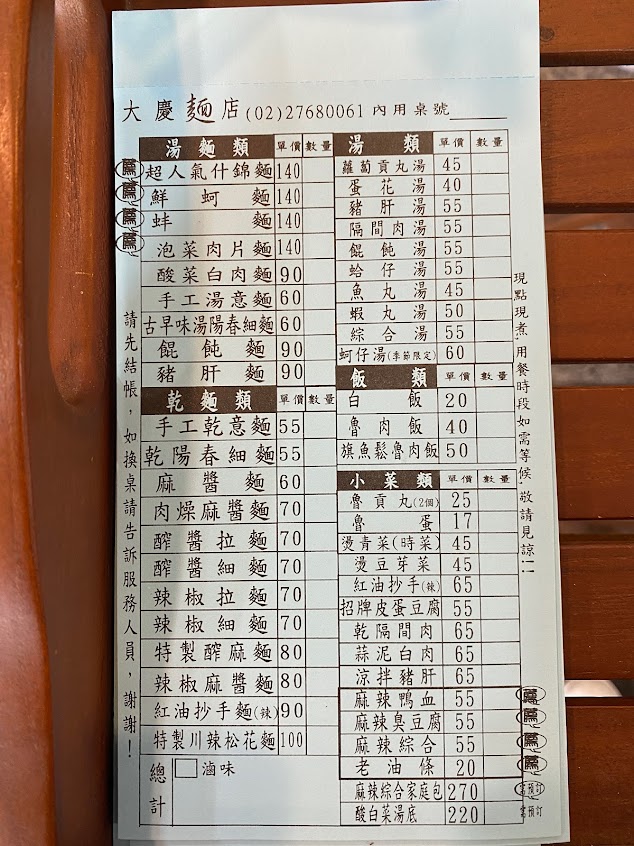 大慶麵店(02)27680061 內用桌號
湯麵類 單價 數量
薦 超人氣什錦麵 140
薦 鮮蚵麵 140
薦 蚌麵 140
薦 泡菜肉片麵 140
酸菜白肉麵 90
手工湯意麵 60
古早味湯陽春細麵 60
餛飩麵 90
豬肝麵 90
乾麵類 單價 數量
手工乾意麵 55
乾陽春細麵 55
麻醬麵 60
肉燥麻醬麵 70
醡醬拉麵 70
醡醬細麵 70
辣椒拉麵 70
辣椒細麵 70
特製醡麻麵 80
辣椒麻醬麵 80
紅油抄手麵(辣) 90
特製川辣松花麵 100
總計
滷味
湯類 單價 數量
蘿蔔貢丸湯 45
蛋花湯 40
豬肝湯 55
隔間肉湯 55
餛飩湯 55
蛤仔湯 55
魚丸湯 45
蝦丸湯 50
綜合湯 55
蚵仔湯(季節限定) 60
飯類 單價 數量
白飯 20
魯肉飯 40
旗魚鬆魯肉飯 50
小菜類 單價 數量
魯貢丸(2個) 25
魯蛋 17
燙青菜(時菜) 45
燙豆芽菜 45
紅油抄手(辣) 65
招牌皮蛋豆腐 55
乾隔間肉 65
蒜泥白肉 65
涼拌豬肝 65
麻辣鴨血 55 薦
麻辣臭豆腐 55 薦
麻辣綜合 55 薦
老油條 20 薦
麻辣綜合家庭包 270 需預訂
酸白菜湯底 220 需預訂
請先結帳，如換桌請告訴服務人員，謝謝！
現點現煮，用餐時段如需等候，敬請見諒！！